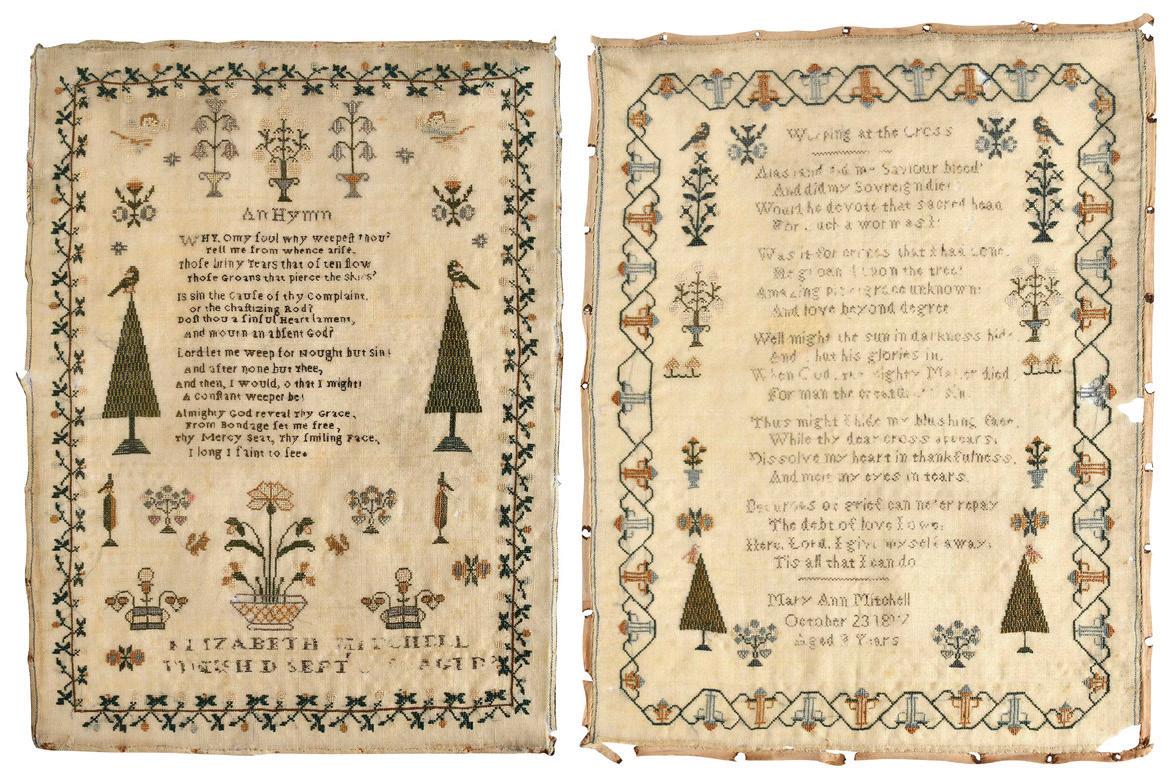 An Hymn
WHY, O my soul why weepest thou?
Tell me from whence arise,
Those briny Tears that often flow
Those Groans that pierce the Skies?
Is sin the Cause of thy Complaint,
or the chastizing Rod?
Dost thou a sinful Heart lament,
and mourn an absent God?
Lord let me weep for Nought but Sin!
And after none but Thee,
And then, I would, o that I might!
A constant weeper be!
Almighty God reveal thy Grace,
From Bondage set me free,
Thy Mercy Seat, Thy smiling Face,
I long I faint to see.
ELIZABETH MITCHELL
SEPT
Weeping at the Cross
Alas and did my Saviour bleed
And did my Sovreign die
Would he devote that sacred head
For such a worm as I
Was it for crimes that I had done,
He groan'd upon the tree!
Amazing pity grace unknown!
And love beyond degree
Well might the sun in darkness hide
And shut his glories in,
When God, the mighty Maker died
For man the creature's sin.
Thus might I hide my blushing face,
While thy dear cross appears;
Dissolve my heart in thankfulness,
And melt my eyes in tears.
of grief can neer repay
The debt of love I owe;
Here, Lord, I give myself away,
Tis all that I can do
Mary Ann Mitchell
October 23
Aged Years